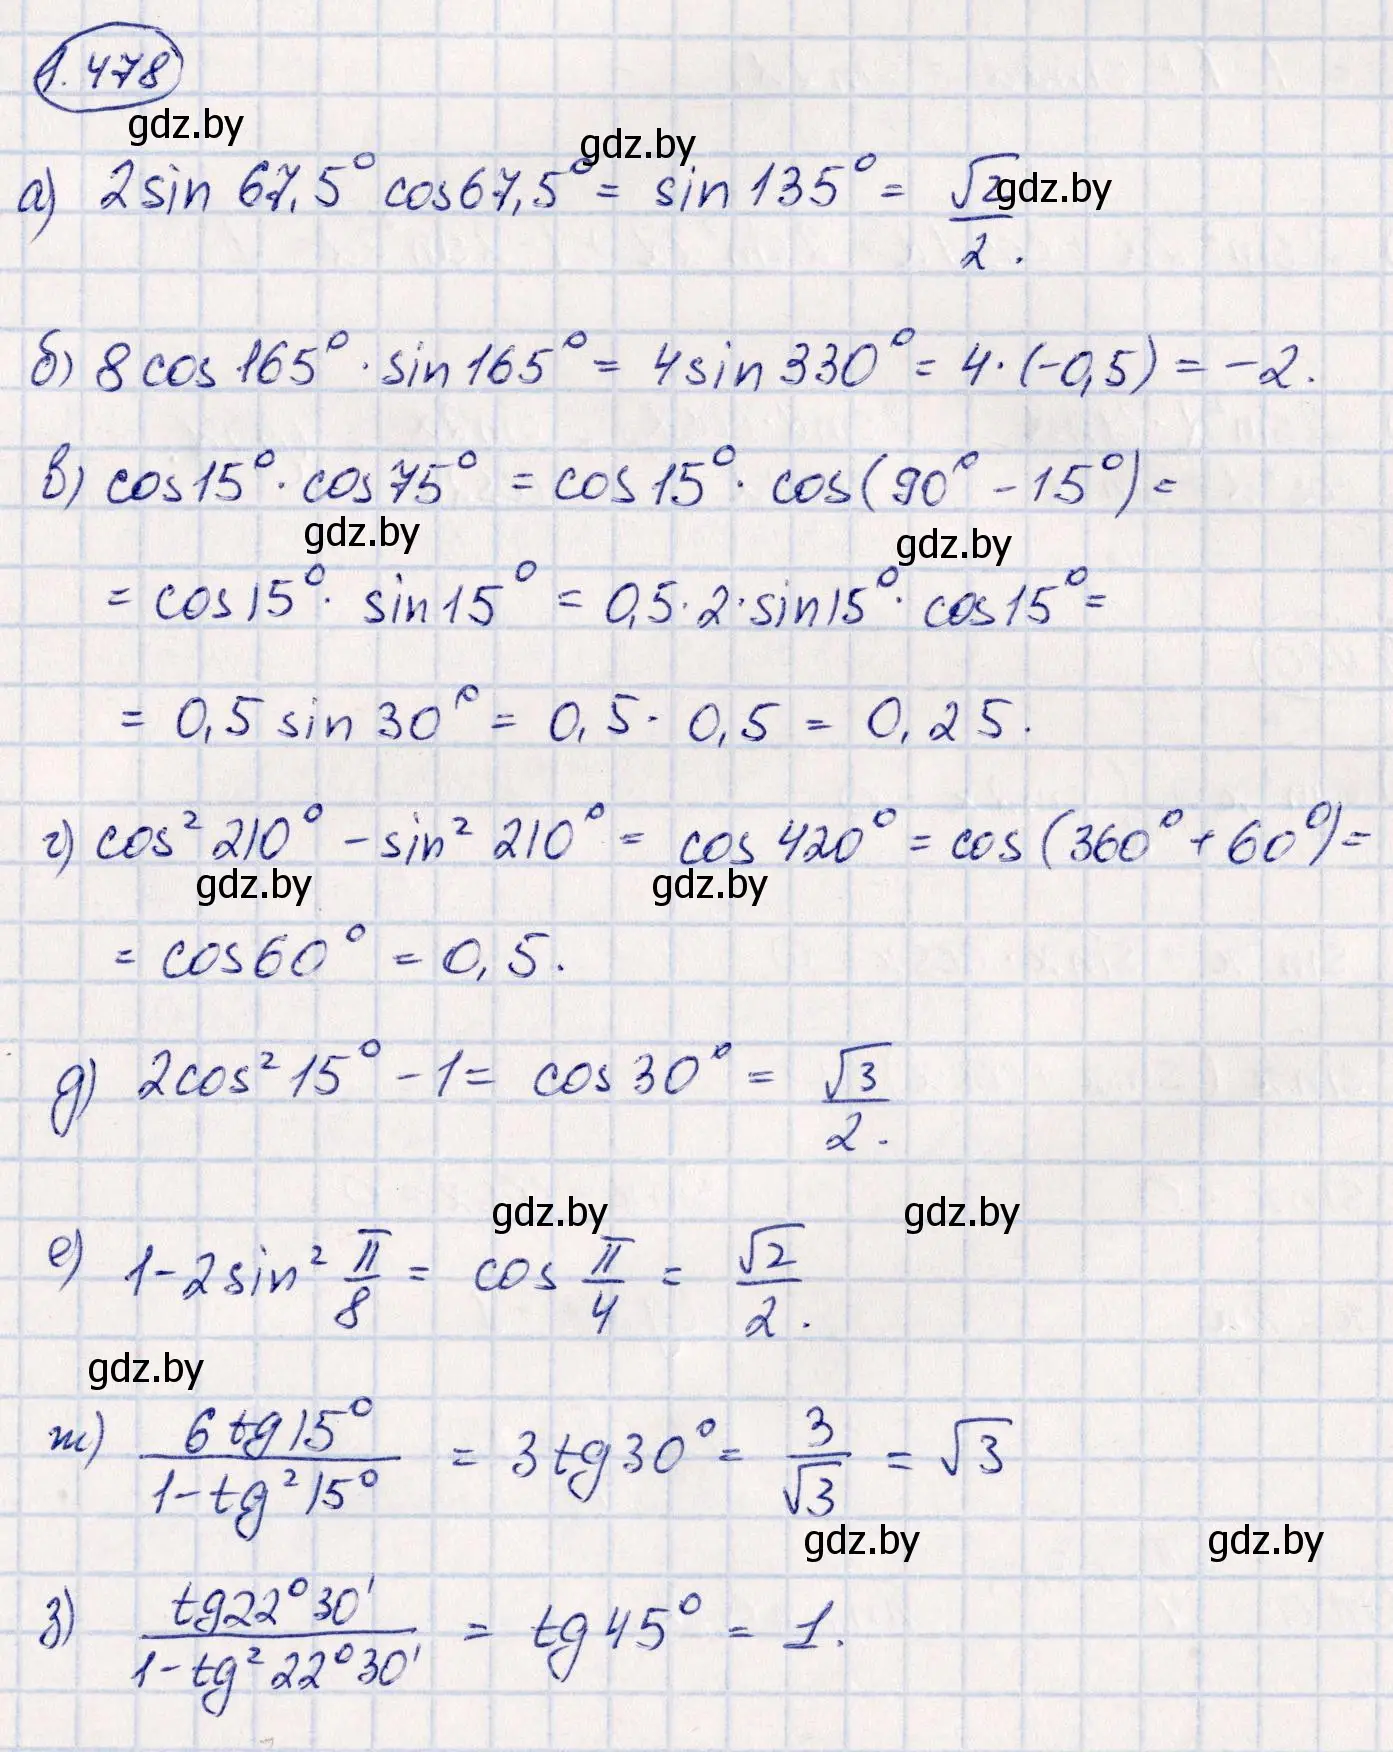 1.478
gdz.by
gdz.by
а) 2sin 67,5° cos67,5° = sin 135° = √2/2.
gdz.by
б) 8 cos 165° · sin 165° = 4 sin 330° = 4·(-0,5) = -2.
в) cos 15° · cos 75° = cos 15° · cos(90° - 15°) =
gdz.by
gdz.by
= cos 15° · sin 15° = 0,5·2·sin15° · cos15° =
= 0,5 sin 30° = 0,5 · 0,5 = 0,25.
г) cos² 210° - sin² 210° = cos 420° = cos (360° + 60°) =
gdz.by
gdz.by
= cos60° = 0,5.
д) 2cos² 15° - 1 = cos 30° = √3/2.
gdz.by
gdz.by
е) 1-2 sin² π/8 = cos π/4 = √2/2.
gdz.by
ж) 6 tg 15° / 1-tg² 15° = 3 tg 30° = 3/√3 = √3
gdz.by
gdz.by
з) tg22°30' / 1-tg² 22°30' = tg 45° = 1.